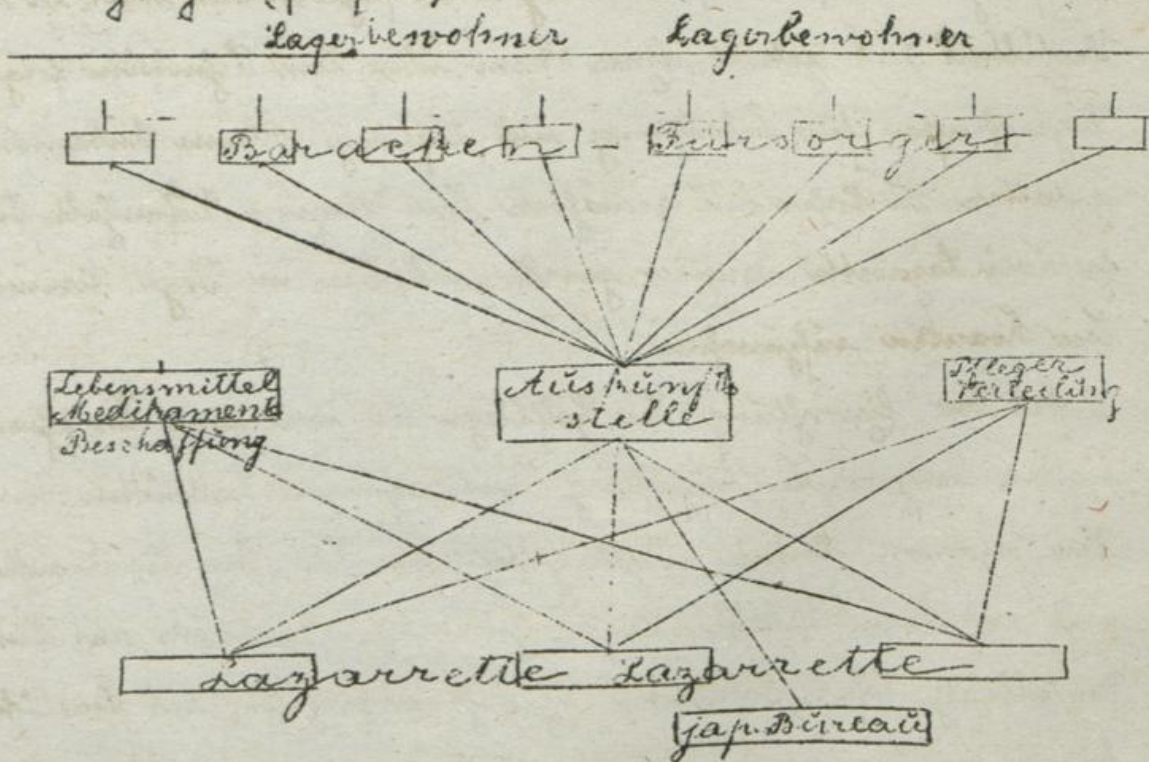 Lagerbewohner Lagerbewohner
Baracken - Fürsorger
Lebensmittel
Medikament
Beschaffüng
Aüskünfts
stelle
Pfleger
Verteilüng
Lazarrette Lazarrette
jap. Büreaü